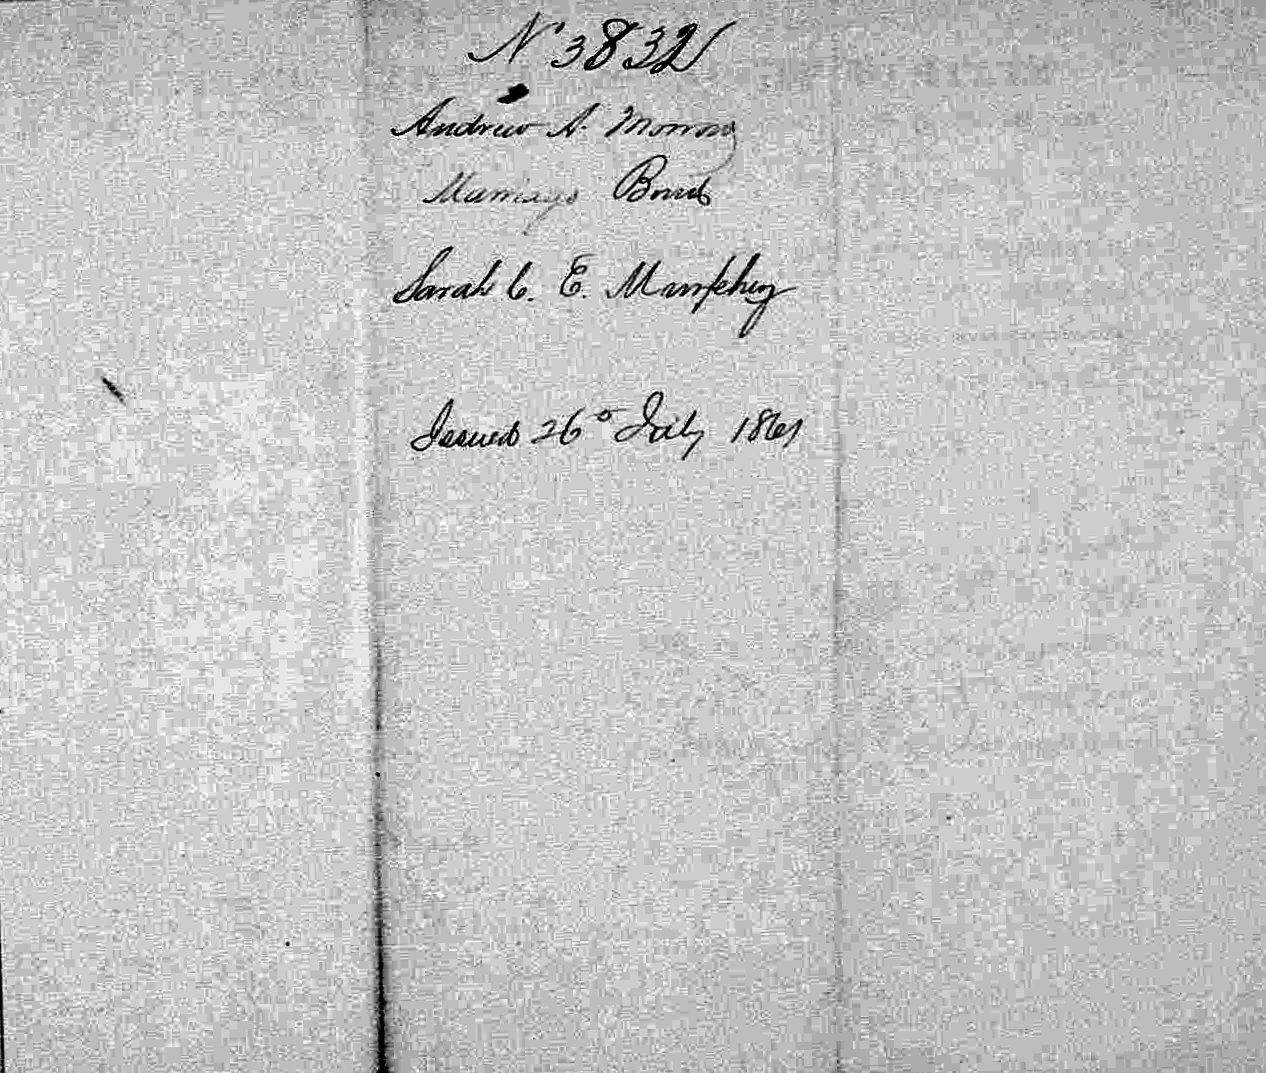 No 3832
Andrew A. Morrow
Marriage Bond
Sarah C. E. Mumphey
Issued 26o July 1861